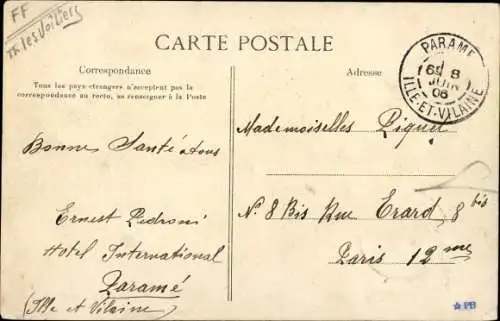 FF
les Voiliers
CARTE POSTALE
Correspondance
Tous les pays étrangers n'acceptent pas la
correspondance au recto, se renseigner à la Poste
Adresse
PARAMÉ
8
JUIN
08
ILLE-ET-VILAINE
Bonne Santé a tous
Ernest Pedroni
Hotel International
Paramé
(Ille et Vilaine)
Mademoiselles Piquet
N. 8 Bis Rue Erard, 8 bis
Paris 12me
PB